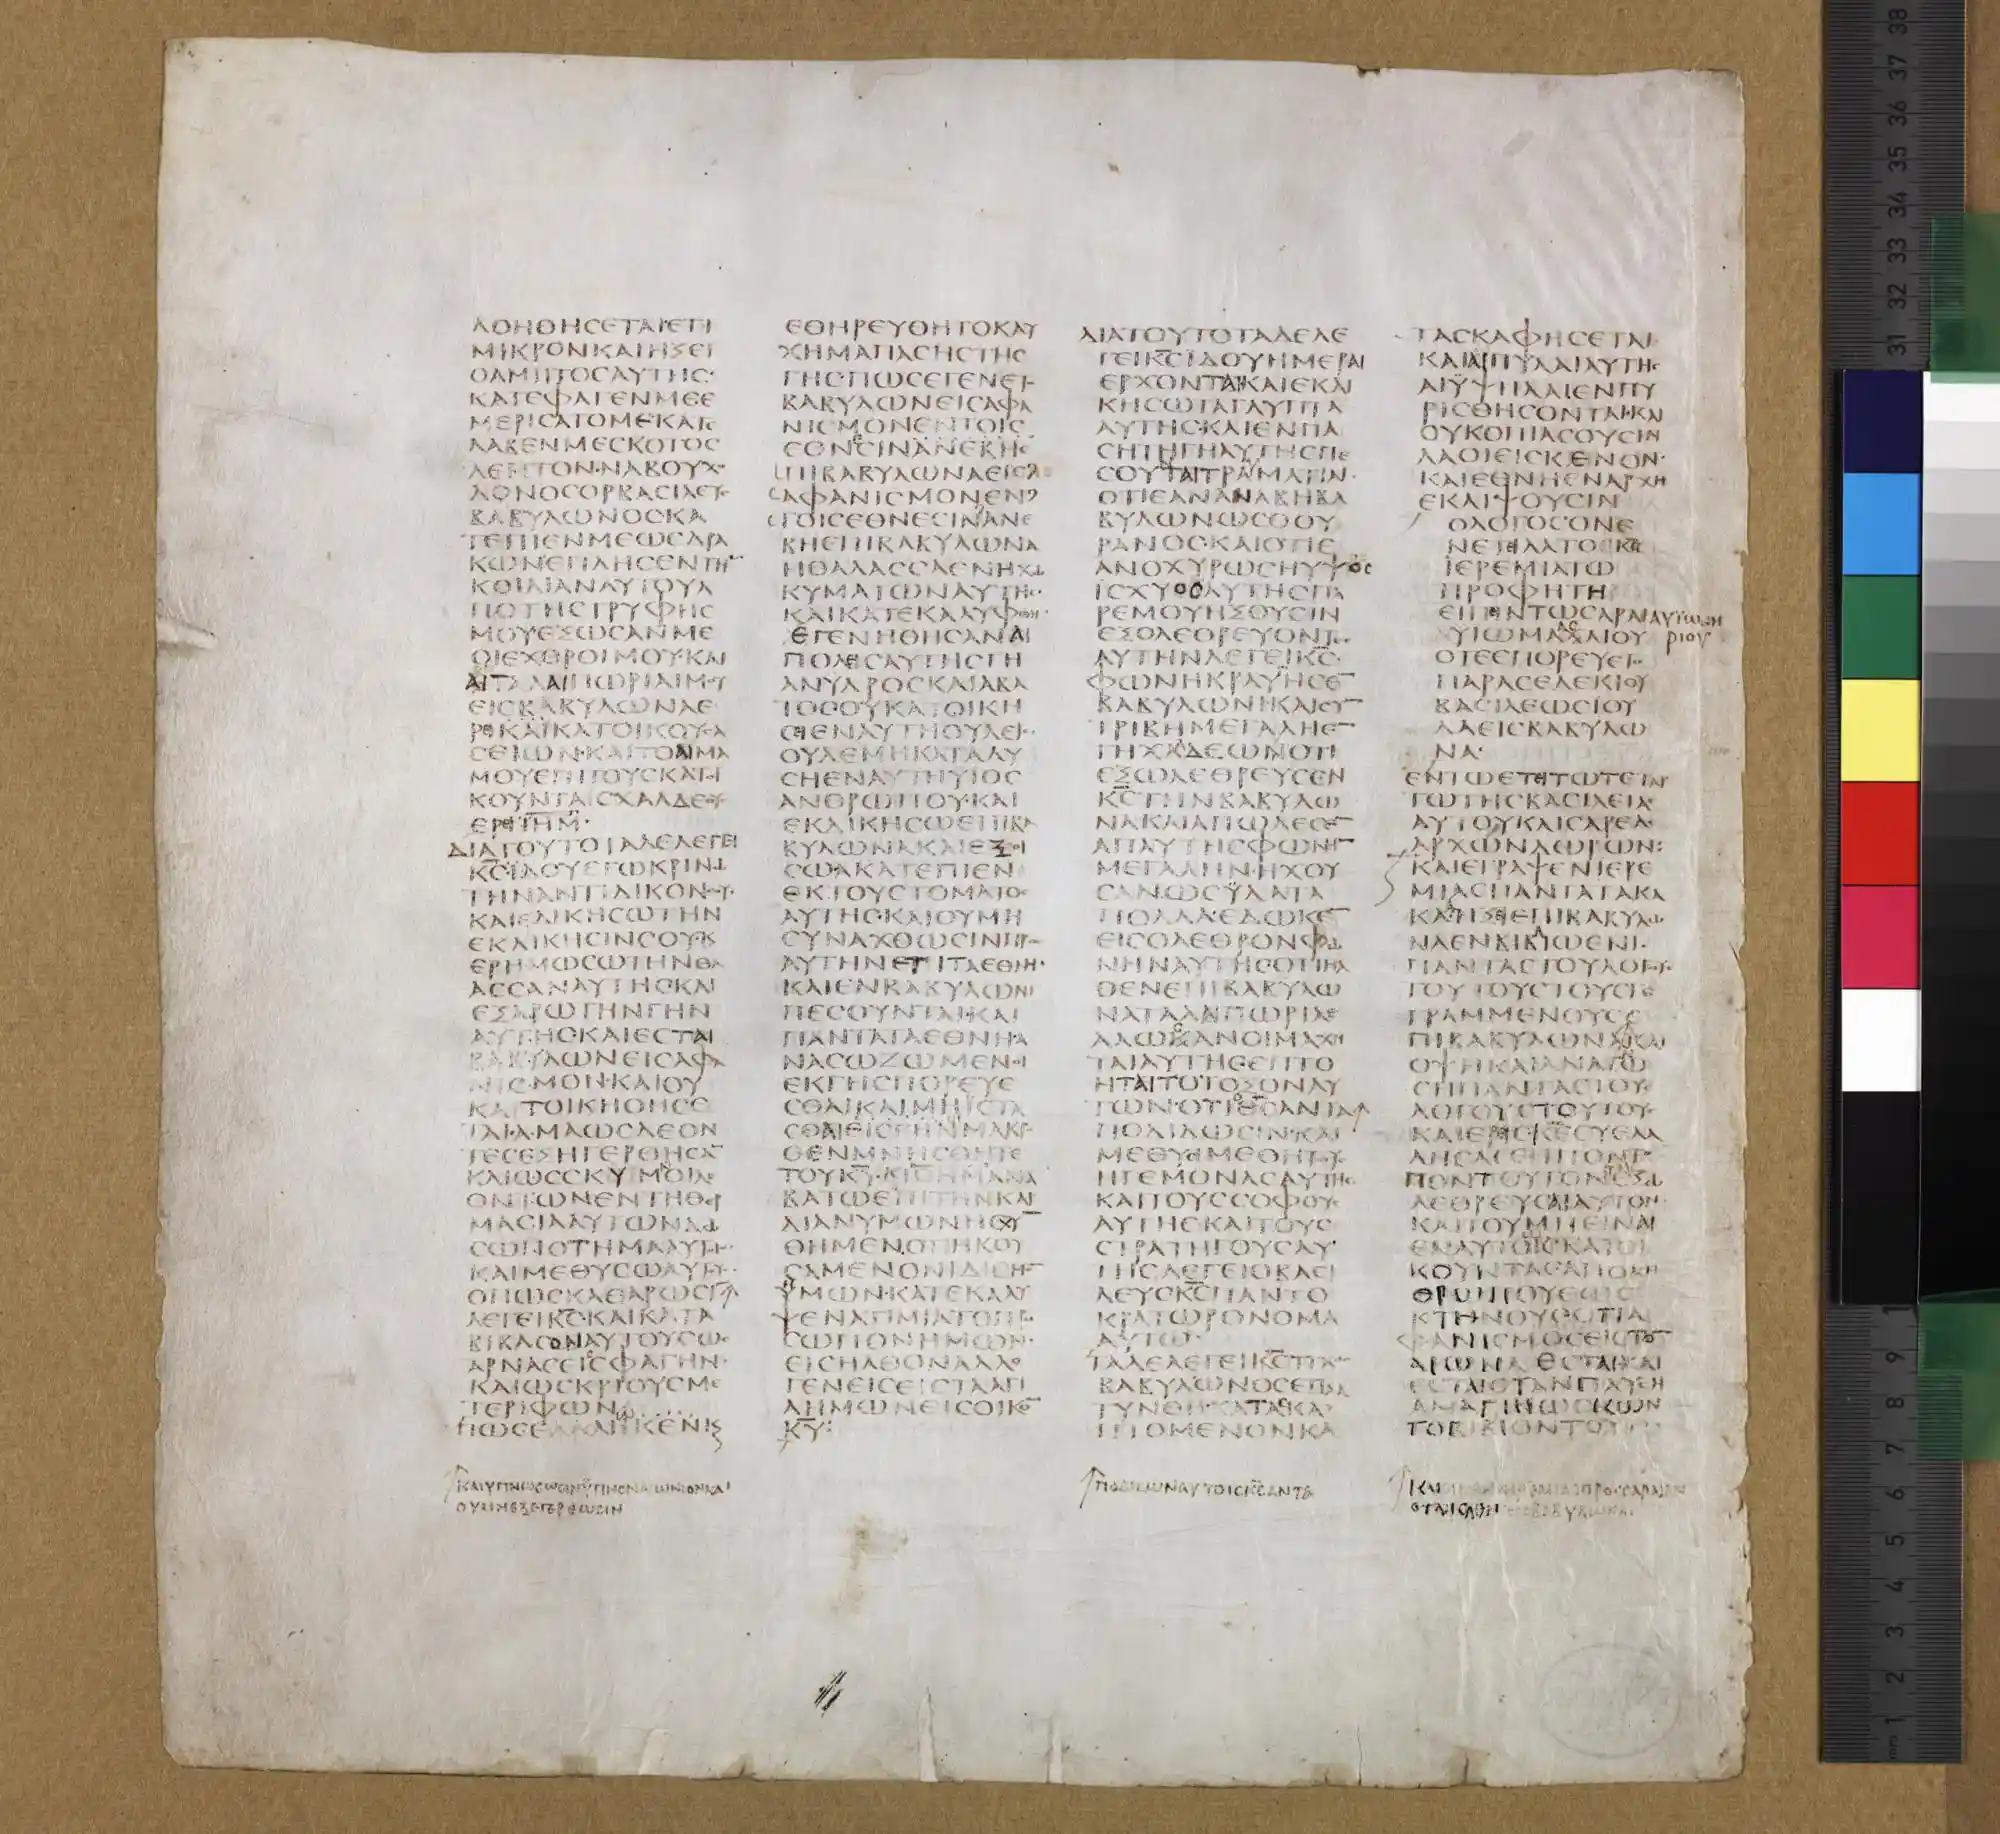 ΛΟΗΘΗϹΕΤΑΙΕΤΙ
ΜΙΚΡΟΝΚΑΙΗΞΕΙ
ΟΑΜΠΤΟϹΑΥΤΗϹ·
ΚΑΤΕΦΑΓΕΝΜΕΕ
ΜΕΡΙϹΑΤΟΜΕΚΑΤΕ
ΛΑΒΕΝΜΕϹΚΟΤΟϹ
ΛΕΠΤΟΝ·ΝΑΒΟΥΧΟ
ΔΟΝΟϹΟΡΒΑϹΙΛΕΥϹ
ΒΑΒΥΛΩΝΟϹΚΑ
ΤΕΠΙΕΝΜΕΩϹΔΡΑ
ΚΩΝΕΠΛΗϹΕΝΤΗΝ
ΚΟΙΛΙΑΝΑΥΤΟΥΑ
ΠΟΤΗϹΤΡΥΦΗϹ
ΜΟΥΕΞΩϹΑΝΜΕ
ΟΙΕΧΘΡΟΙΜΟΥ·ΚΑΙ
ΑΙΤΑΛΑΙΠΩΡΙΑΙΜΟΥ
ΕΙϹΒΑΒΥΛΩΝΑΕ
ΡΕΙΚΑΙΚΑΤΟΙΚΟΥϹΑ
ϹΕΙΩΝ·ΚΑΙΤΟΑΙΜΑ
ΜΟΥΕΠΙΤΟΥϹΚΑΤΟΙ
ΚΟΥΝΤΑϹΧΑΛΔΕΟΥϹ
ΕΡΕΙΙΛΗΜ·
ΔΙΑΤΟΥΤΟΤΑΔΕΛΕΓΕΙ
ΚϹΙΔΟΥΕΓΩΚΡΙΝΩ
ΤΗΝΑΝΤΙΔΙΚΟΝϹΟΥ·
ΚΑΙΕΚΔΙΚΗϹΩΤΗΝ
ΕΚΔΙΚΗϹΙΝϹΟΥΚ
ΕΡΗΜΩϹΩΤΗΝΘΑ
ΛΑϹϹΑΝΑΥΤΗϹΚΑΙ
ΕΞΑΡΩΤΗΝΓΗΝ
ΑΥΤΗϹΚΑΙΕϹΤΑΙ
ΒΑΒΥΛΩΝΕΙϹΑΦΑ
ΝΙϹΜΟΝ·ΚΑΙΟΥ
ΚΑΤΟΙΚΗΘΗϹΕ
ΤΑΙ·ΑΜΑΩϹΛΕΟΝ
ΤΕϹΕΞΗΓΕΡΘΗϹΑΝ
ΚΑΙΩϹϹΚΥΜΝΟΙΛΕ
ΟΝΤΩΝΕΝΤΗΘΕΡ
ΜΑϹΙΑΑΥΤΩΝΔΩ
ϹΩΠΟΤΗΜΑΑΥΤΟΙϹ
ΚΑΙΜΕΘΥϹΩΑΥΤΟΥϹ
ΟΠΩϹΚΑΘΑΡΩϹΙΝ
ΛΕΓΕΙΚϹ·ΚΑΙΚΑΤΑ
ΒΙΒΑϹΟΝΑΥΤΟΥϹΩϹ
ΑΡΝΑϹΕΙϹΦΑΓΗΝ·
ΚΑΙΩϹΚΡΙΟΥϹΜΕ
ΤΕΡΙΦΩΝ
ΠΩϹΕΑΛΩΚΕΝΚΑΙϹ
ΕΘΗΡΕΥΘΗΤΟΚΑΥ
ΧΗΜΑΠΑϹΗϹΤΗϹ
ΓΗϹ·ΠΩϹΕΓΕΝΕΤΟ
ΒΑΒΥΛΩΝΕΙϹΑΦΑ
ΝΙϹΜΟΝΕΝΤΟΙϹ
ΕΘΝΕϹΙΝΑΝΕΒΗΕ
ΠΙΒΑΒΥΛΩΝΑΕΙϹ
ΑΦΑΝΙϹΜΟΝΕΝ
ΤΟΙϹΕΘΝΕϹΙΝΑΝΕ
ΒΗΕΠΙΒΑΒΥΛΩΝΑ
ΗΘΑΛΑϹϹΑΕΝΗΧΩ
ΚΥΜΑΤΩΝΑΥΤΗϹ·
ΚΑΙΚΑΤΕΚΑΛΥΦΘΗ·
ΕΓΕΝΗΘΗϹΑΝΑΙ
ΠΟΛΕΙϹΑΥΤΗϹΓΗ
ΑΝΥΔΡΟϹΚΑΙΑΒΑ
ΤΟϹΟΥΚΑΤΟΙΚΗ
ϹΕΙΕΝΑΥΤΗΟΥΔΕΙϹ·
ΟΥΔΕΜΗΚΑΤΑΛΥ
ϹΗΕΝΑΥΤΗΥΙΟϹ
ΑΝΘΡΩΠΟΥ·ΚΑΙ
ΕΚΔΙΚΗϹΩΕΠΙΒΑ
ΒΥΛΩΝΑΚΑΙΕΞΟΙ
ϹΩΑΚΑΤΕΠΙΕΝ
ΕΚΤΟΥϹΤΟΜΑΤΟϹ
ΑΥΤΗϹ·ΚΑΙΟΥΜΗ
ϹΥΝΑΧΘΩϹΙΝΠΡΟϹ
ΑΥΤΗΝΕΤΙΤΑΕΘΝΗ·
ΚΑΙΕΝΒΑΒΥΛΩΝΙ
ΠΕϹΟΥΝΤΑΙ·ΚΑΙ
ΠΑΝΤΑΤΑΕΘΝΗΑ
ΝΑϹΩΖΩΜΕΝΟΙ
ΕΚΓΗϹΠΟΡΕΥΕ
ϹΘΑΙΚΑΙΜΗΙϹΤΑ
ϹΘΑΙΟΙϹΓΗΝΜΑΚΡΟ
ΘΕΝΜΝΗϹΘΗΤΕ
ΤΟΥΚΥ·ΚΙΛΗΜΑΝΑ
ΒΑΤΩΕΠΙΤΗΝΚΑΡ
ΔΙΑΝΥΜΩΝΗϹΧΥΝ
ΘΗΜΕΝ·ΟΤΙΗΚΟΥ
ϹΑΜΕΝΟΝΙΔΙϹΜΟΝ
ΥΜΩΝ·ΚΑΤΕΚΑΛΥ
ΨΕΝΑΤΙΜΙΑΤΟΠΡΟ
ϹΩΠΟΝΗΜΩΝ·
ΕΙϹΗΛΘΟΝΑΛΛΟ
ΓΕΝΕΙϹΕΙϹΤΑΑΓΙ
ΑΗΜΩΝΕΙϹΟΙΚΟΝ
ΚΥ:
ΔΙΑΤΟΥΤΟΤΑΔΕΛΕ
ΓΕΙΚϹΙΔΟΥΗΜΕΡΑΙ
ΕΡΧΟΝΤΑΙΚΑΙΕΚΔΙ
ΚΗϹΩΤΑΓΛΥΠΤΑ
ΑΥΤΗϹ·ΚΑΙΕΝΠΑ
ϹΗΤΗΓΗΑΥΤΗϹΠΕ
ϹΟΥΝΤΑΙΤΡΑΥΜΑΤΙΑΙ·
ΟΤΙΕΑΝΑΝΑΒΗΒΑ
ΒΥΛΩΝΩϹΟΟΥ
ΡΑΝΟϹ·ΚΑΙΟΤΙΕ
ΑΝΟΧΥΡΩϹΗΥΨΟϹ
ΙϹΧΥΟϹΑΥΤΗϹΠΑ
ΡΕΜΟΥΗΞΟΥϹΙΝ
ΕΞΟΛΕΘΡΕΥΟΝΤΕϹ
ΑΥΤΗΝΛΕΓΕΙΚϹ·
ΦΩΝΗΚΡΑΥΓΗϹΕΝ
ΒΑΒΥΛΩΝΙΚΑΙϹΥΝ
ΤΡΙΒΗΜΕΓΑΛΗΕΝ
ΓΗΧΑΛΔΕΩΝΟΤΙ
ΕΞΩΛΕΘΡΕΥϹΕΝ
ΚϹΤΗΝΒΑΒΥΛΩ
ΝΑΚΑΙΑΠΩΛΕϹΕΝ
ΑΠΑΥΤΗϹΦΩΝΗΝ
ΜΕΓΑΛΗΝ·ΗΧΟΥ
ϹΑΝΩϹΥΔΑΤΑ
ΠΟΛΛΑ·ΕΔΩΚΕΝ
ΕΙϹΟΛΕΘΡΟΝΦΩ
ΝΗΝΑΥΤΗϹΟΤΙΗΛ
ΘΕΝΕΠΙΒΑΒΥΛΩ
ΝΑΤΑΛΑΙΠΩΡΙΑΕ
ΑΛΩϹΑΝΟΙΜΑΧΗ
ΤΑΙΑΥΤΗϹΕΠΤΟ
ΗΤΑΙΤΟΤΟΞΟΝΑΥ
ΤΩΝ·ΟΤΙΘϹΑΝΤΑ
ΠΟΔΙΔΩϹΙΝ·ΚΑΙ
ΜΕΘΥϹΙΜΕΘΗΤΟΥϹ
ΗΓΕΜΟΝΑϹΑΥΤΗϹ
ΚΑΙΤΟΥϹϹΟΦΟΥϹ
ΑΥΤΗϹΚΑΙΤΟΥϹ
ϹΤΡΑΤΗΓΟΥϹΑΥ
ΤΗϹΛΕΓΕΙΟΒΑϹΙ
ΛΕΥϹΚϹΠΑΝΤΟ
ΚΡΑΤΩΡΟΝΟΜΑ
ΑΥΤΩ·
ΤΑΔΕΛΕΓΕΙΚϹΤΙΧΟϹ
ΒΑΒΥΛΩΝΟϹΕΠΛΑ
ΤΥΝΘΗ·ΚΑΤΑϹΚΑ
ΠΤΟΜΕΝΟΝΚΑ
ΤΑϹΚΑΦΗϹΕΤΑΙ
ΚΑΙΑΙΠΥΛΑΙΑΥΤΗϹ
ΑΙΥΨΗΛΑΙΕΝΠΥ
ΡΙϹΘΗϹΟΝΤΑΙ·ΚΑΙ
ΟΥΚΟΠΙΑϹΟΥϹΙΝ
ΛΑΟΙΕΙϹΚΕΝΟΝ·
ΚΑΙΕΘΝΗΕΝΑΡΧΗ
ΕΚΛΙΨΟΥϹΙΝ
ΟΛΟΓΟϹΟΝΕ
ΝΕΤΙΛΑΤΟΚϹ
ΙΕΡΕΜΙΑΤΩ
ΠΡΟΦΗΤΗ
ΕΙΠΕΙΝΤΩϹΑΡΑΙΑΥΙΩΝΗ
ΡΙΟΥ
ΥΙΩΜΑΑϹΑΙΟΥ
ΟΤΕΕΠΟΡΕΥΕΤΟ
ΠΑΡΑϹΕΔΕΚΙΟΥ
ΒΑϹΙΛΕΩϹΙΟΥ
ΔΑΕΙϹΒΑΒΥΛΩ
ΝΑ·
ΕΝΤΩΕΤΕΙΤΩΤΕΤΑΡ
ΤΩΤΗϹΒΑϹΙΛΕΙΑϹ
ΑΥΤΟΥΚΑΙϹΑΡΕΑϹ
ΑΡΧΩΝΔΩΡΩΝ:
ΚΑΙΕΓΡΑΨΕΝΙΕΡΕ
ΜΙΑϹΠΑΝΤΑΤΑΚΑ
ΚΑΑΗΞΕΙΕΠΙΒΑΒΥΛΩ
ΝΑΕΝΒΙΒΛΙΩΕΝΙ·
ΠΑΝΤΑϹΤΟΥϹΛΟΓΟΥϹ
ΤΟΥΤΟΥϹΤΟΥϹΓΕ
ΓΡΑΜΜΕΝΟΥϹΕ
ΠΙΒΑΒΥΛΩΝΑΚΑΙ
ΟΨΗΚΑΙΑΝΑΓΝΩ
ϹΗΠΑΝΤΑϹΤΟΥϹ
ΛΟΓΟΥϹΤΟΥΤΟΥϹ
ΚΑΙΕΡΕΙϹΚΕϹΥΕΛΑ
ΛΗϹΑϹΕΠΙΤΟΝΤΟ
ΠΟΝΤΟΥΤΟΝΕΞΩ
ΛΕΘΡΕΥϹΑΙΑΥΤΟΝ·
ΚΑΙΤΟΥΜΗΕΙΝΑΙ
ΕΝΑΥΤΟΙϹΚΑΤΟΙ
ΚΟΥΝΤΑϹΑΠΟΑΝ
ΘΡΩΠΟΥΕΩϹ
ΚΤΗΝΟΥϹΟΤΙΑ
ΦΑΝΙϹΜΟϹΕΙϹΤΟΝ
ΑΙΩΝΑΕϹΤΑΙ·ΚΑΙ
ΕϹΤΑΙΟΤΑΝΠΑΥϹΗ
ΑΝΑΓΙΝΩϹΚΩΝ
ΤΟΒΙΒΛΙΟΝΤΟΥΤΟ
ΚΑΙΥΠΝΩϹΩϹΙΝΥΠΝΟΝΑΙΩΝΙΟΝΚΑΙ
ΟΥΜΗΕΞΕΓΕΡΘΩϹΙΝ
ΠΟΔΙΔΩΝΑΥΤΟΙϹΚϹΑΝΤΑ
ΚΑΙΕΙΠΕΝΙΕΡΕΜΙΑϹΠΡΟϹϹΑΡΑΙΑΝ
ΟΤΑΝΕΛΘΗϹΕΙϹΒΑΒΥΛΩΝΑ